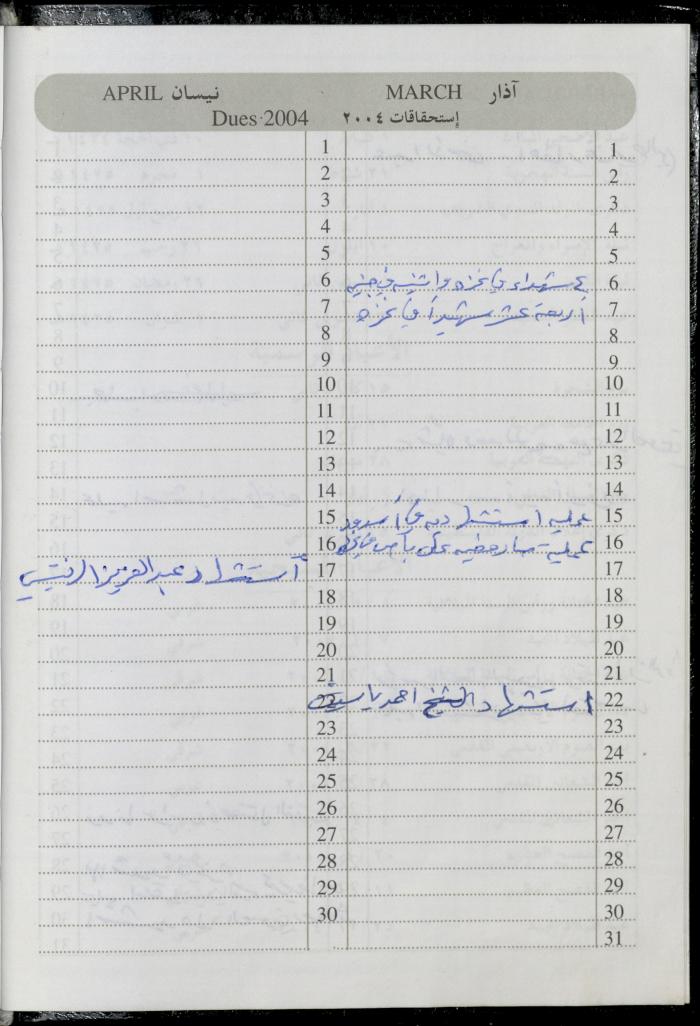 آذار MARCH
نيسان APRIL
إستحقاقات ٢٠٠٤ Dues 2004
1
2
3
4
5
6 ٤ شهداء في غزه واثنين في جنين
7 أربعة عشر شهيداً في غزه
8
9
10
11
12
13
14
15 عمليه استشهاديه في أسدود
16 عملية على باص في
17
18
19
20
21
22 استشهاد الشيخ احمد ياسين
23
24
25
26
27
28
29
30
31
1
2
3
4
5
6
7
8
9
10
11
12
13
14
15
16
17 أستشهاد عبد العزيز الرنتيسي
18
19
20
21
22
23
24
25
26
27
28
29
30